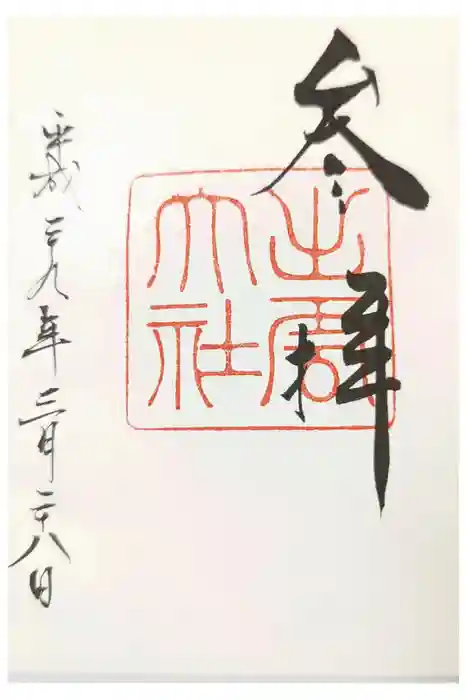 参拝
出雲大社
平成二九年三月二十八日